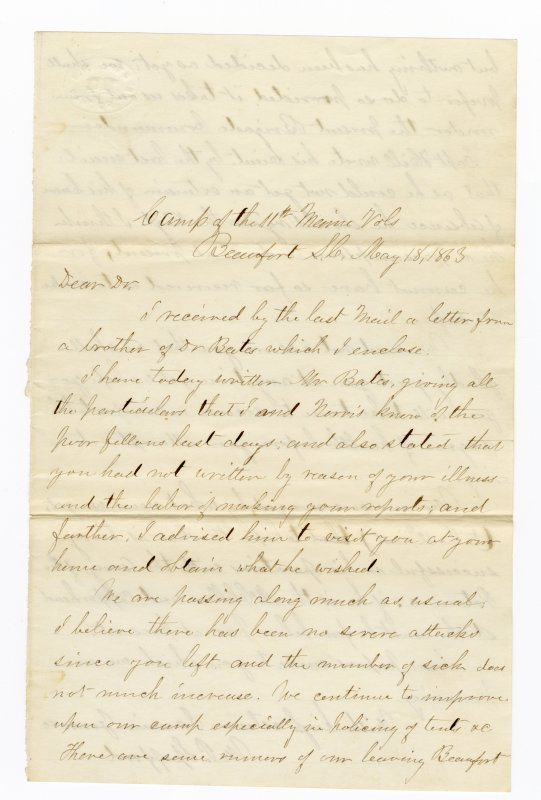 Camp of the 11th Maine Vols
Beaufort S.C. May 18, 1863
Dear Dr.
I received by the last Mail a letter from
a brother of Dr Bates which I enclose.
I have today written Mr Bates, giving all
the particulars that I and Norris know of the
poor fellows last days; and also stated that
you had not written by reason of your illness
and the labor of making your reports; and
further, I advised him to visit you at your
home and obtain what he wished.
We are passing along much as usual.
I believe there has been no severe attacks
since you left and the number of sick does
not much increase. We continue to improve
upon our camp especially in policing of tents &c
There are some rumors of our leaving Beaufort